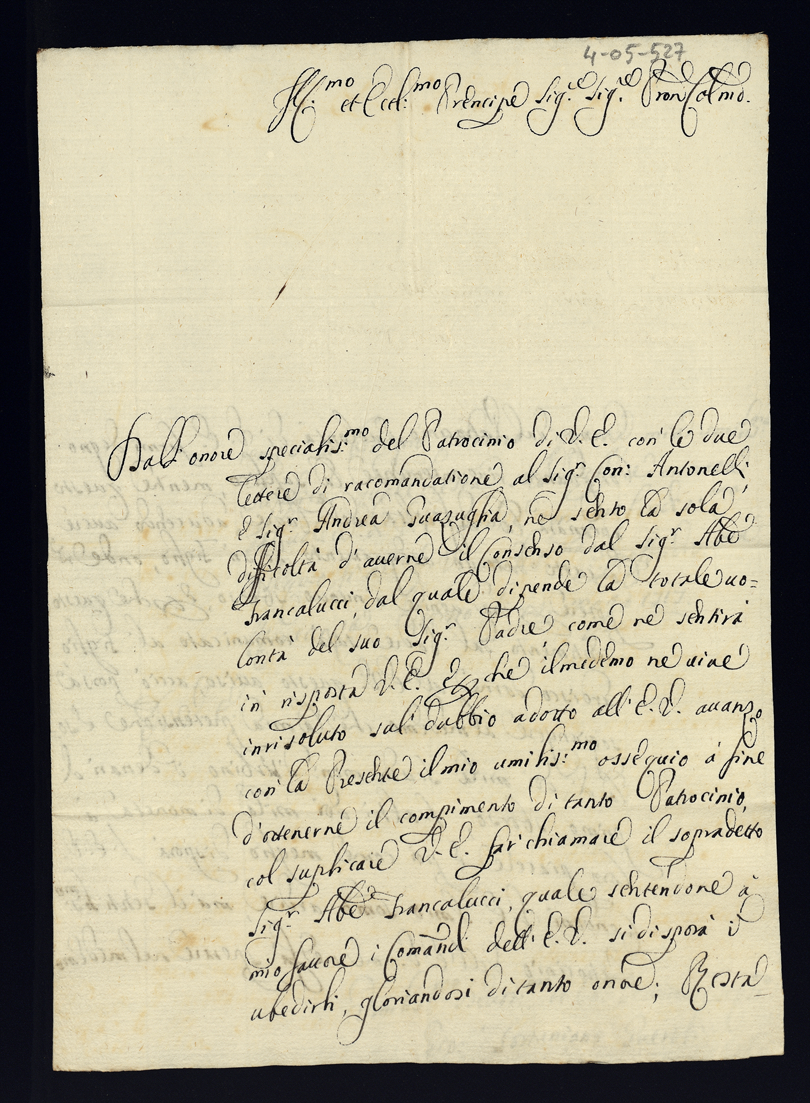 4-05-527
Ill:mo et Eccel:mo Prencipe Sig.re Sig.re Pron Colmo.
Dall' onore specialis:mo del Patrocinio di V. E. con le due
lettere di racomandatione al Sig.r Con: Antonelli,
e Sig.r Andrea Guazuglia, ne sento la sola
difficoltà d'auerne il Consenso dal Sig.r Abe
Francalucci, dal quale dipende la totale uo=
lontà del suo Sig.r Padre come ne sentirà
in risposta V. E. E che il medemo ne uiue
inrisoluto sul dubbio adotto all' E. V. auanzo
con la Presente il mio umilis:mo ossequio à fine
d'ottenerne il compimento di tanto Patrocinio,
col suplicare V. E. far chiamare il sopradetto
Sig.r Abe Francalucci, quale sentendone à
mio fauore i Comandi dell' E. V. si disporà i
ubedirli, gloriandosi di tanto onore; Resta